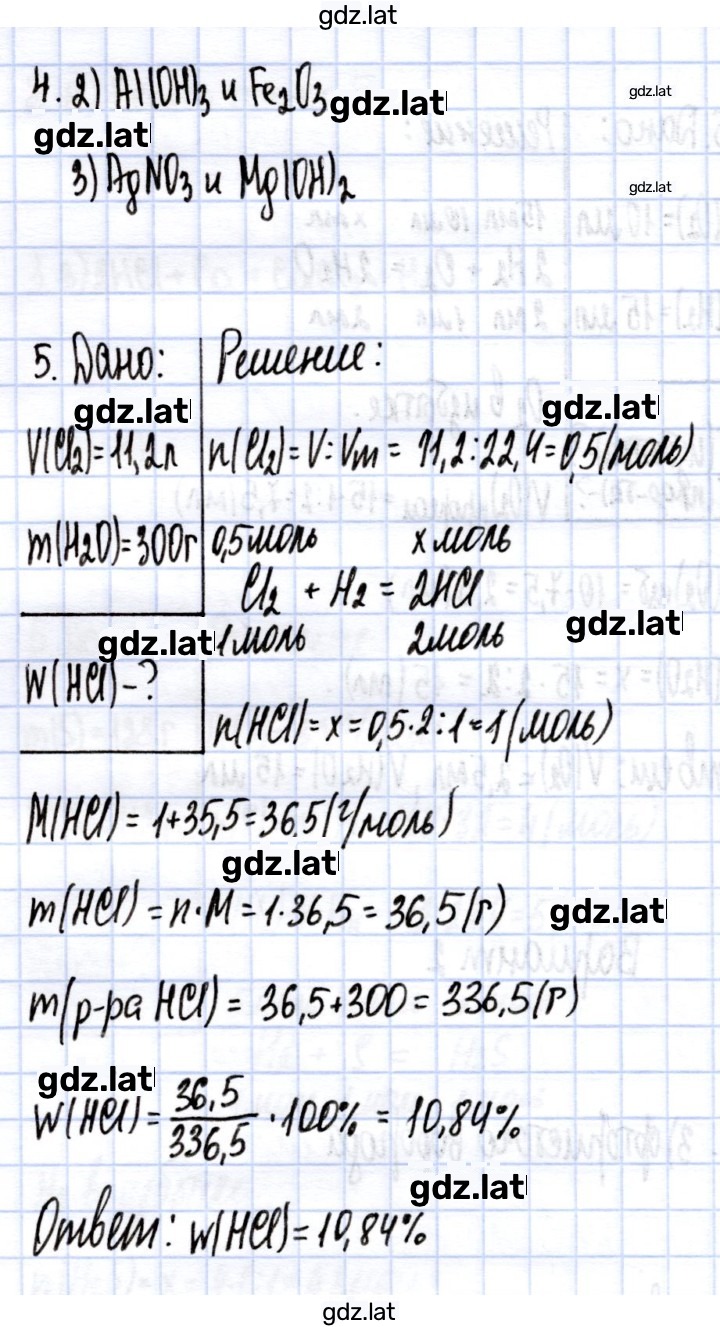 gdz.lat
4. 2) Al(OH)₃ и Fe₂O₃ gdz.lat
gdz.lat
gdz.lat
3) AgNO₃ и Mg(OH)₂
gdz.lat
5. Дано: Решение:
gdz.lat gdz.lat
V(Cl₂)=11,2л n(Cl₂)=V:Vm = 11,2:22,4=0,5(моль)
m(H₂O)=300г 0,5моль x моль
Cl₂ + H₂ = 2HCl
gdz.lat 1моль 2моль gdz.lat
W(HCl)-?
n(HCl)=x=0,5·2:1=1(моль)
M(HCl)=1+35,5=36.5(г/моль)
gdz.lat
m(HCl)=n·M=1·36,5=36,5(г) gdz.lat
m(р-ра HCl)= 36,5+300= 336,5(г)
gdz.lat
W(HCl)= 36,5/336,5 ·100% = 10,84%
gdz.lat
Ответ: W(HCl)=10,84%
gdz.lat